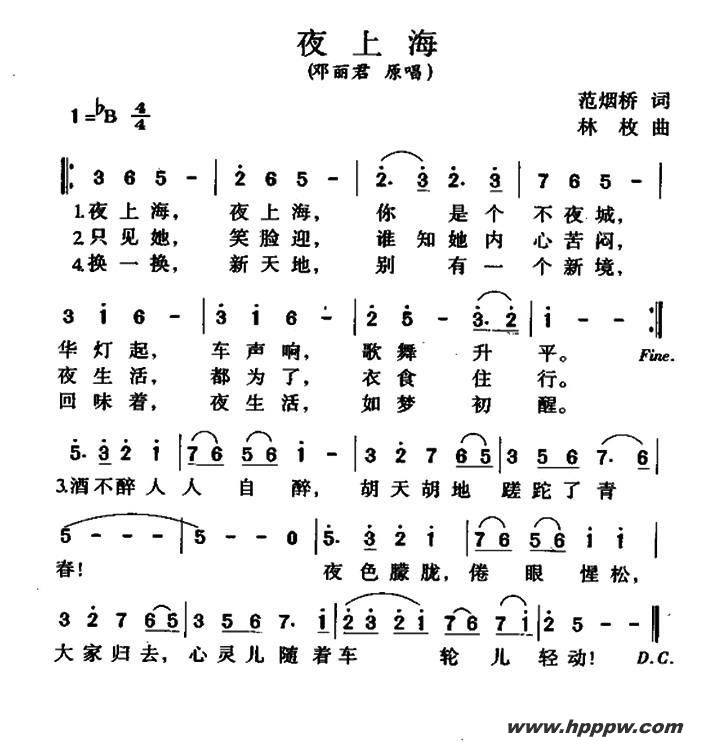 夜上海
(邓丽君 原唱)
范烟桥 词
1=♭B 4/4
林 枚 曲
3 6 5 - | 2 6 5 - | 2. 3 2. 3 | 7 6 5 - |
1.夜上海， 夜上海， 你 是个 不夜城，
2.只见她， 笑脸迎， 谁知她内 心苦闷，
4.换一换， 新天地， 别 有一 个新境，
3 1 6 - | 3 1 6 - | 2 5 - 3. 2 | 1 - - :|
华灯起， 车声响， 歌舞 升 平。 Fine.
夜生活， 都为了， 衣食 住 行。
回味着， 夜生活， 如梦 初 醒。
5. 3 2 1 | 7 6 5 6 1 - | 3 2 7 6 5 | 3 5 6 7. 6 |
3.酒不醉人人 自 醉， 胡天胡地 蹉跎了青
5 - - - | 5 - - 0 | 5. 3 2 1 | 7 6 5 6 1 1 |
春！ 夜色朦胧，倦 眼 惺松，
3 2 7 6 5 | 3 5 6 7. 1 | 2 3 2 1 7 6 7 1 | 2 5 - - ‖
大家归去，心灵儿随着车 轮 儿 轻动！ D.C.
www.hpppw.com